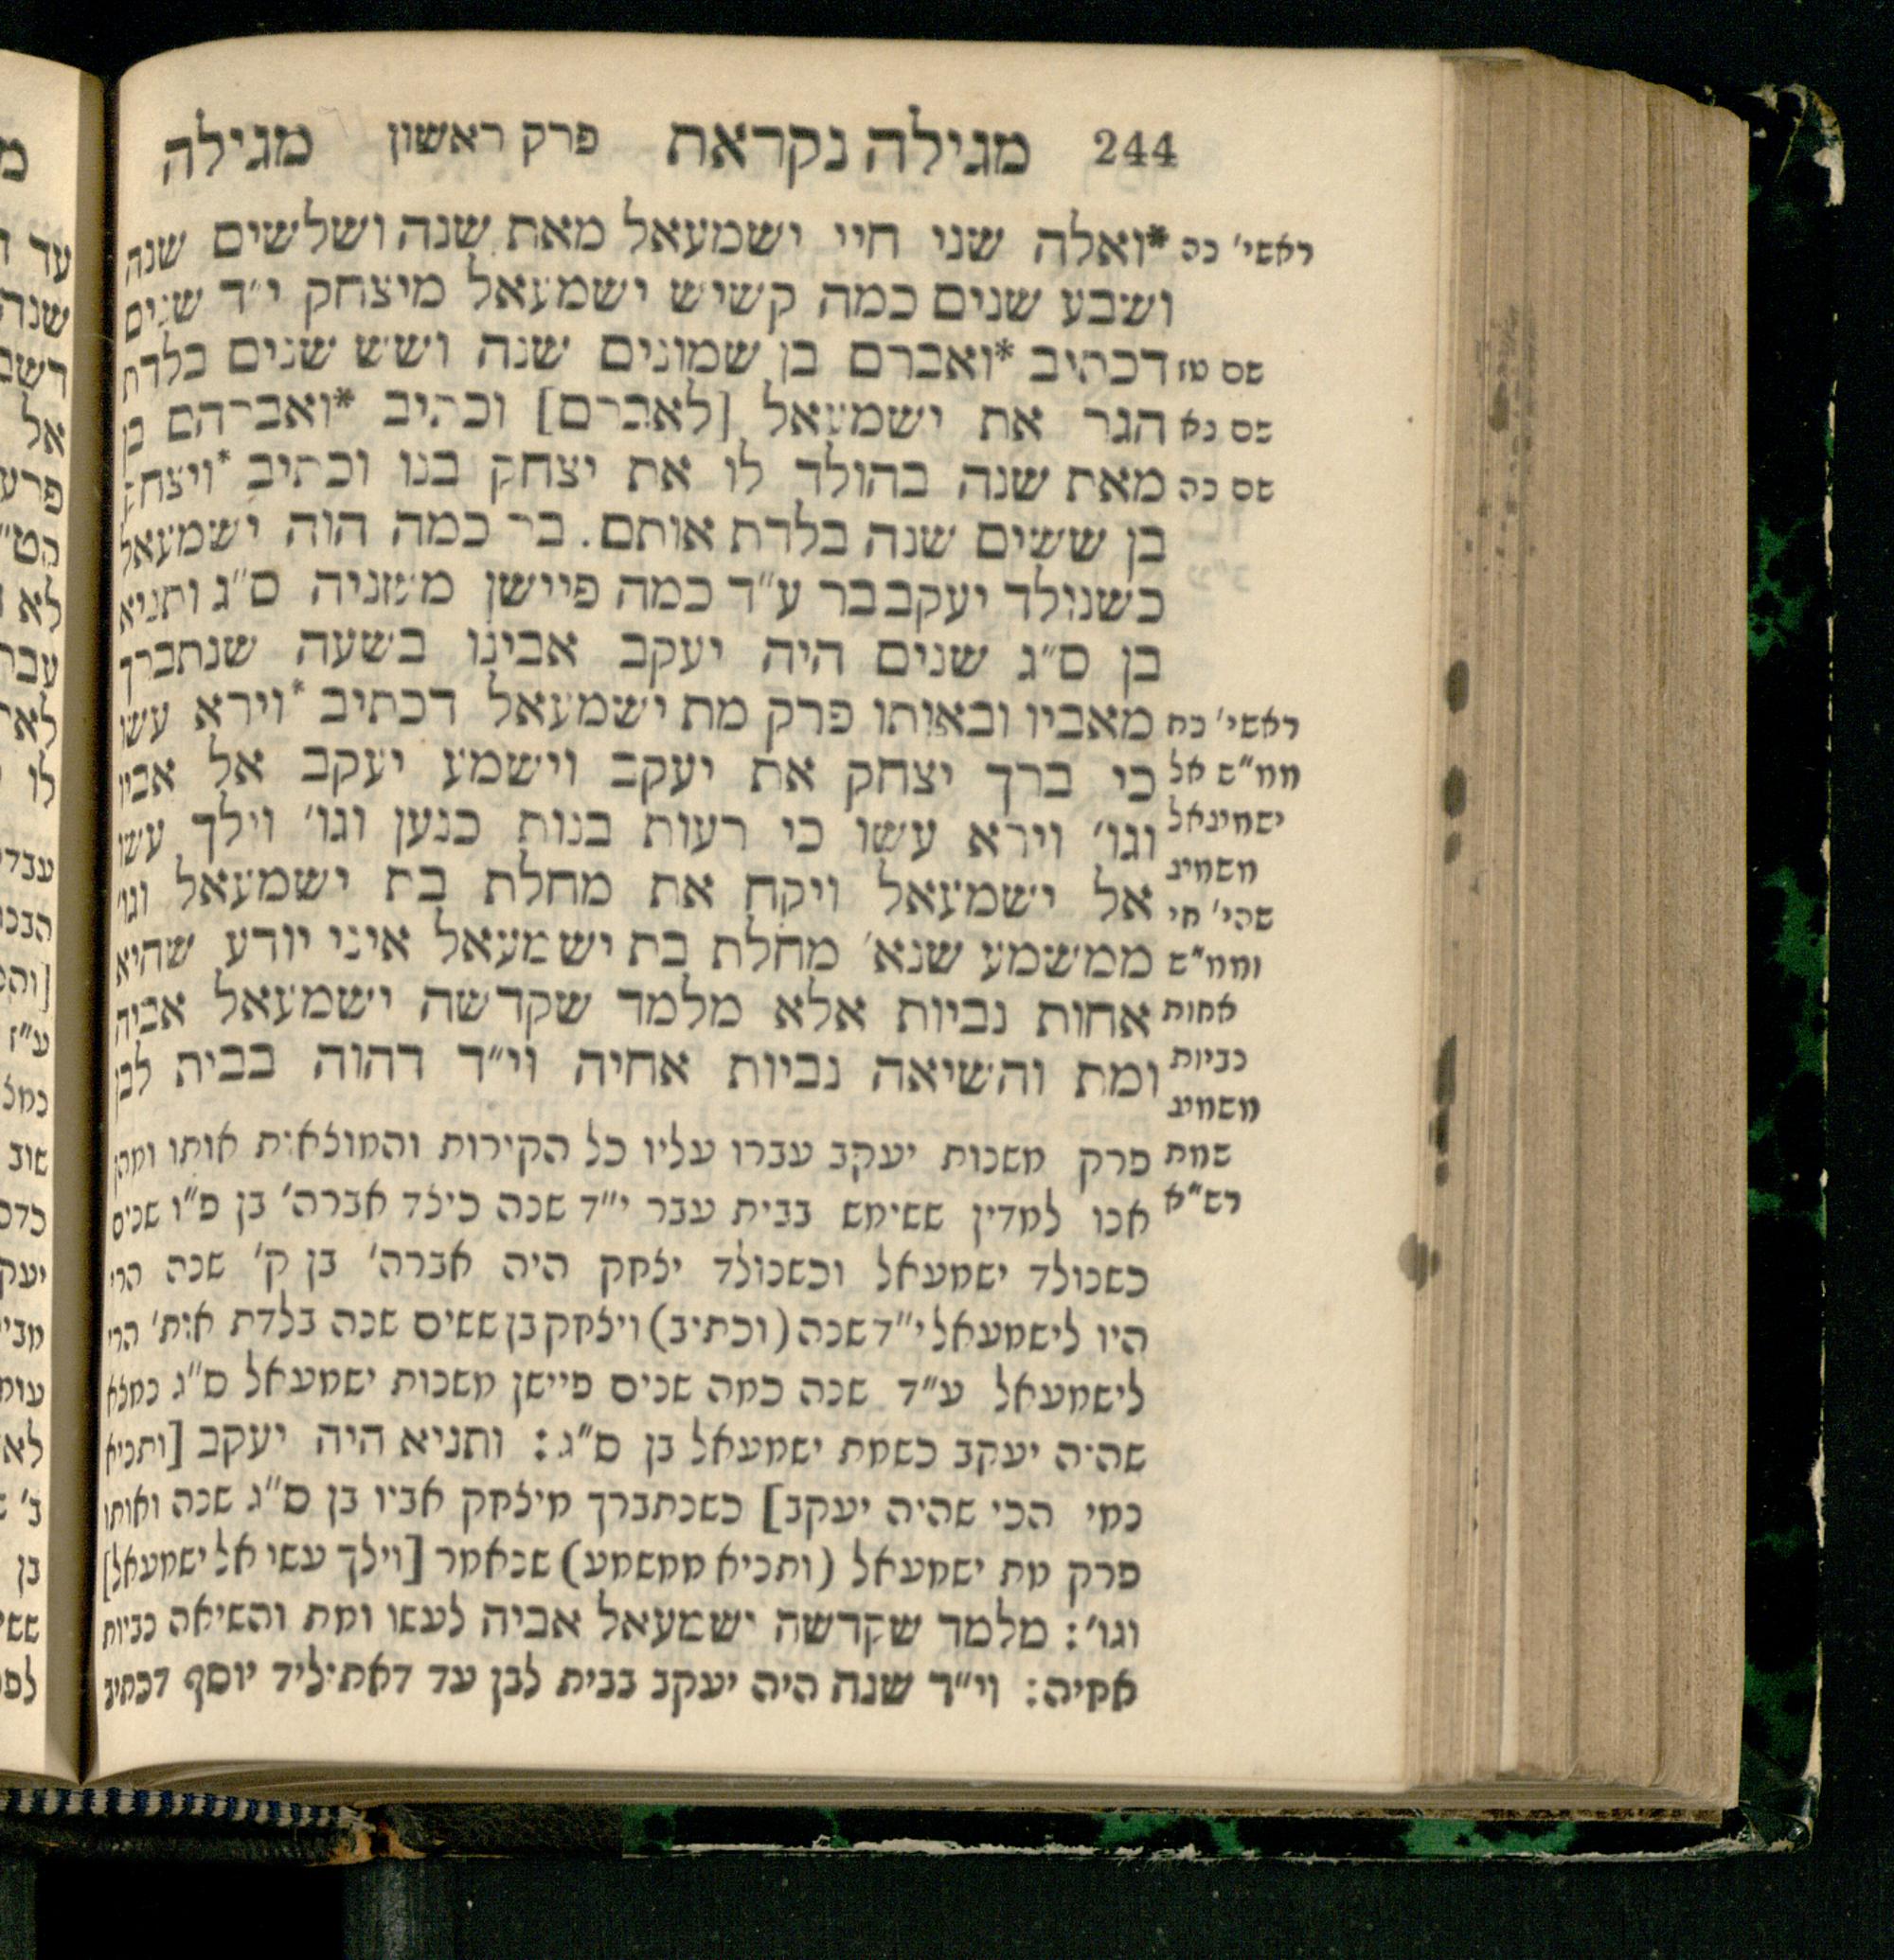 244 מגילה נקראת פרק ראשון מגילה
ראשי׳ כה *ואלה שני חיי ישמעאל מאת שנה ושלשים שנה
ושבע שנים כמה קשיש ישמעאל מיצחק י״ד שנים
שם טז דכתיב *ואברם בן שמונים שנה ושש שנים בלדת
שם כא הגר את ישמעאל [לאברם] וכתיב *ואברהם בן
שם כה מאת שנה בהולד לו את יצחק בנו וכתיב *ויצחק
בן ששים שנה בלדת אותם. בר כמה הוה ישמעאל
כשנולד יעקב בר ע״ד כמה פיישן משניה ס״ג ותניא
בן ס״ג שנים היה יעקב אבינו בשעה שנתברך
ראשי׳ כח מאביו ובאותו פרק מת ישמעאל דכתיב *וירא עשו
כי ברך יצחק את יעקב וישמע יעקב אל אביו
וגו׳ וירא עשו כי רעות בנות כנען וגו׳ וילך עשו
אל ישמעאל ויקח את מחלת בת ישמעאל וגו׳
ממשמע שנא׳ מחלת בת ישמעאל איני יודע שהיא
אחות נביות אלא מלמד שקדשה ישמעאל אביה
ומת והשיאה נביות אחיה וי״ד דהוה בבית לבן
ממ״ש אל
ישמעאל
משמע
שהי׳ חי
וממ״ש
אחות
נביות
משמע
שמת
רש״א
פרק משנות יעקב עברו עליו כל הקירות והמוצאות אותו ומהן
אנו למדין ששימש בבית עבר י״ד שנה כילד אברה׳ בן פ״ו שנים
כשנולד ישמעאל וכשנולד יצחק היה אברה׳ בן ק׳ שנה הרי
היו לישמעאל י״ד שנה (וכתיב) ויצחק בן ששים שנה בלדת אות׳ הרי
לישמעאל ע״ד שנה כמה שנים פיישן משנות ישמעאל ס״ג נמצא
שהיה יעקב כשמת ישמעאל בן ס״ג: ותניא היה יעקב [ותניא
נמי הכי שהיה יעקב] כשנתברך מיצחק אביו בן ס״ג שנה ואותו
פרק מת ישמעאל (ותניא ממשמע) שנאמר [וילך עשו אל ישמעאל]
וגו׳: מלמד שקדשה ישמעאל אביה לעשו ומת והשיאה נביות
אחיה: וי״ד שנה היה יעקב בבית לבן עד דאתיליד יוסף דכתיב